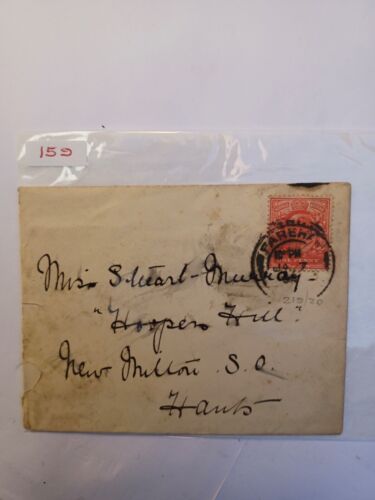 159
FAREHAM
Miss Stuart-Murray
"Hoopers Hill".
New Milton S.O.
Hants